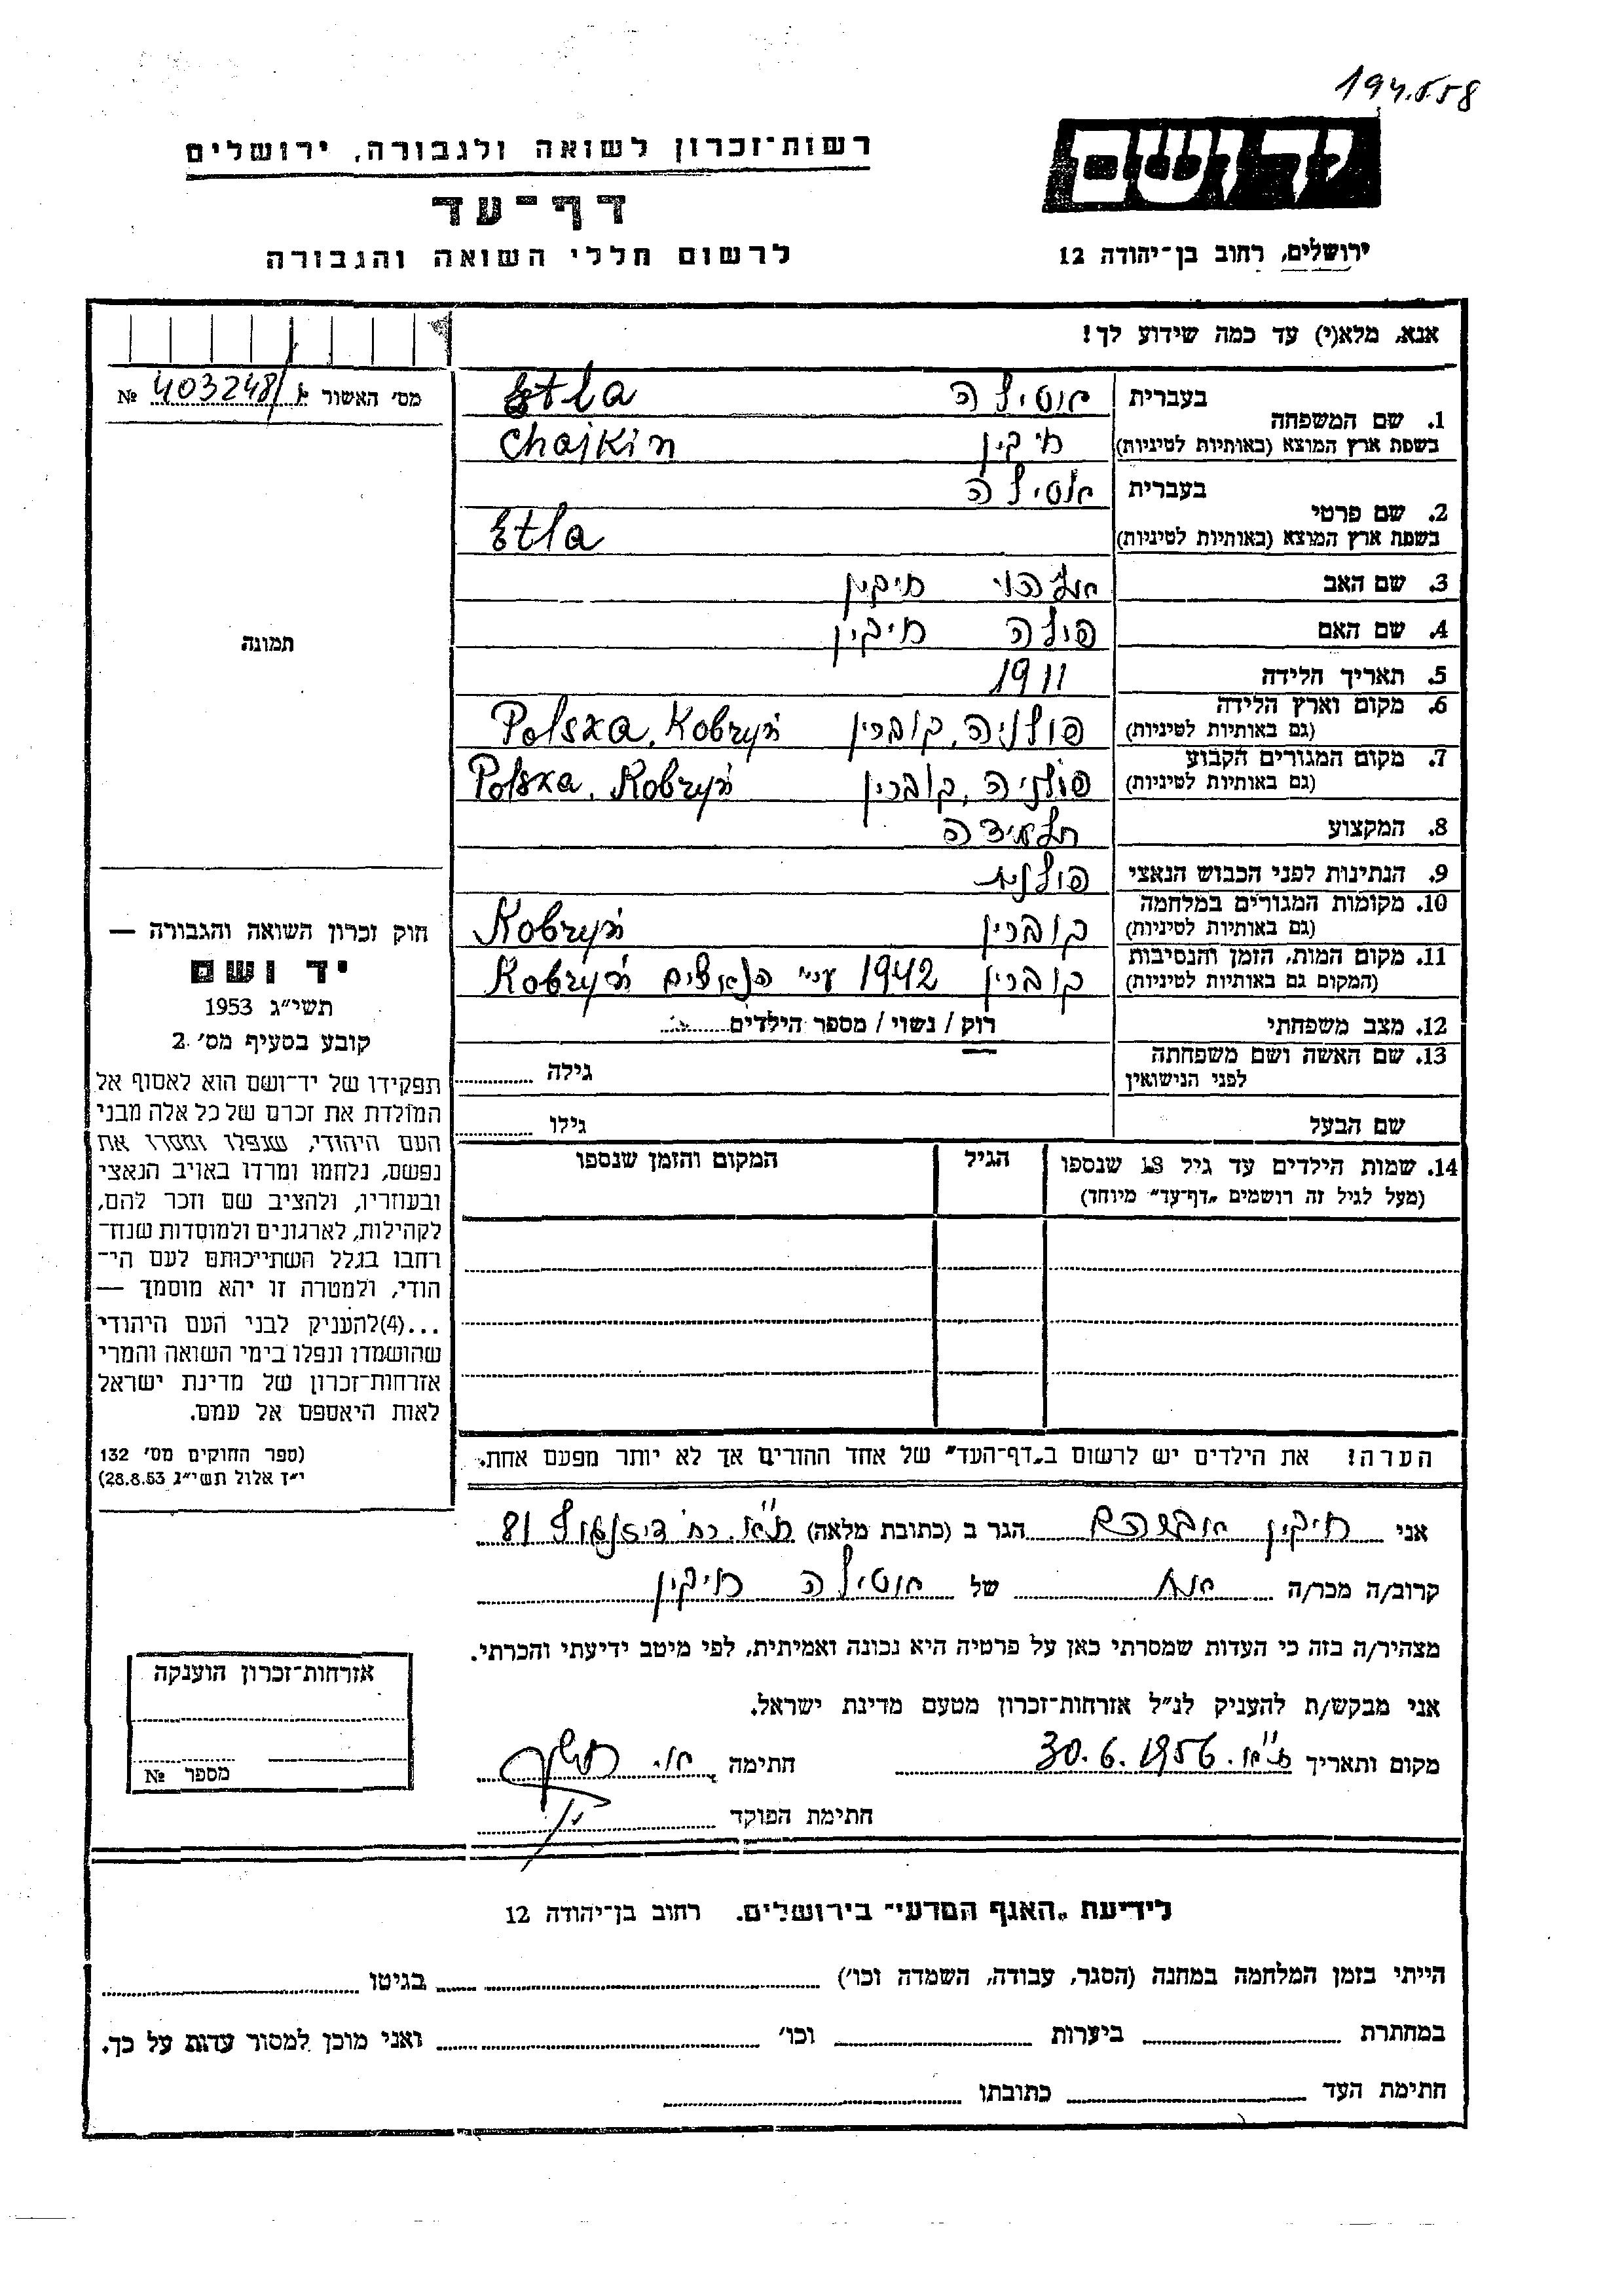 194.5.58
יד ושם
רשות־זכרון לשואה ולגבורה, ירושלים
דף־עד
לרשום חללי השואה והגבורה
ירושלים, רחוב בן־יהודה 12
אנא, מלא(י) עד כמה שידוע לך!
מס׳ האשור № 403248/
1. שם המשפחה בעברית אטילה Etla
בשפת ארץ המוצא (באותיות לטיניות) חיקין Chajkin
2. שם פרטי בעברית אטילה
בשפת ארץ המוצא (באותיות לטיניות) Etla
3. שם האב אליהו חיקין
4. שם האם פולה חיקין
5. תאריך הלידה 1911
6. מקום וארץ הלידה
(גם באותיות לטיניות) פולניה, קוברין Polska, Kobryń
7. מקום המגורים הקבוע
(גם באותיות לטיניות) פולניה, קוברין Polska, Kobryń
8. המקצוע תלמידה
9. הנתינות לפני הכבוש הנאצי פולנית
10. מקומות המגורים במלחמה
(גם באותיות לטיניות) קוברין Kobryń
11. מקום המות, הזמן והנסיבות
(המקום גם באותיות לטיניות) קוברין 1942 ע״י הנאצים Kobryń
12. מצב משפחתי רוק / נשוי / מספר הילדים
13. שם האשה ושם משפחתה
לפני הנישואין גילה
שם הבעל גילו
14. שמות הילדים עד גיל 18 שנספו הגיל המקום והזמן שנספו
(מעל לגיל זה רושמים „דף־עד״ מיוחד)
תמונה
חוק זכרון השואה והגבורה —
יד ושם
תשי״ג 1953
קובע בסעיף מס׳ 2
תפקידו של יד־ושם הוא לאסוף אל
המולדת את זכרם של כל אלה מבני
העם היהודי, שנפלו ומסרו את
נפשם, נלחמו ומרדו באויב הנאצי
ובעוזריו, ולהציב שם וזכר להם,
לקהילות, לארגונים ולמוסדות שנח־
רחבו בגלל השתייכותם לעם הי־
הודי, ולמטרה זו יהא מוסמך —
...(4)להעניק לבני העם היהודי
שהושמדו ונפלו בימי השואה והמרי
אזרחות־זכרון של מדינת ישראל
לאות היאספם אל עמם.
(ספר החוקים מס׳ 132
י״ד אלול תשי״ג 28.8.53)
הערה! את הילדים יש לרשום ב„דף־העד״ של אחד ההורים אך לא יותר מפעם אחת.
אני חיקין אברהם הגר ב (כתובת מלאה) ת״א רח׳ דיזנגוף 81
קרוב/ה מכר/ה אח של אטילה חיקין
מצהיר/ה בזה כי העדות שמסרתי כאן על פרטיה היא נכונה ואמיתית, לפי מיטב ידיעתי והכרתי.
אני מבקש/ת להעניק לנ״ל אזרחות־זכרון מטעם מדינת ישראל.
מקום ותאריך ת״א. 30.6.1956 חתימה
חתימת הפוקד
אזרחות־זכרון הוענקה
מספר №
לידיעת „האגף המדעי״ בירושלים. רחוב בן־יהודה 12
הייתי בזמן המלחמה במחנה (הסגר, עבודה, השמדה וכו׳) בגיטו
במחתרת ביערות וכו׳ ואני מוכן למסור עדות על כך.
חתימת העד כתובתו